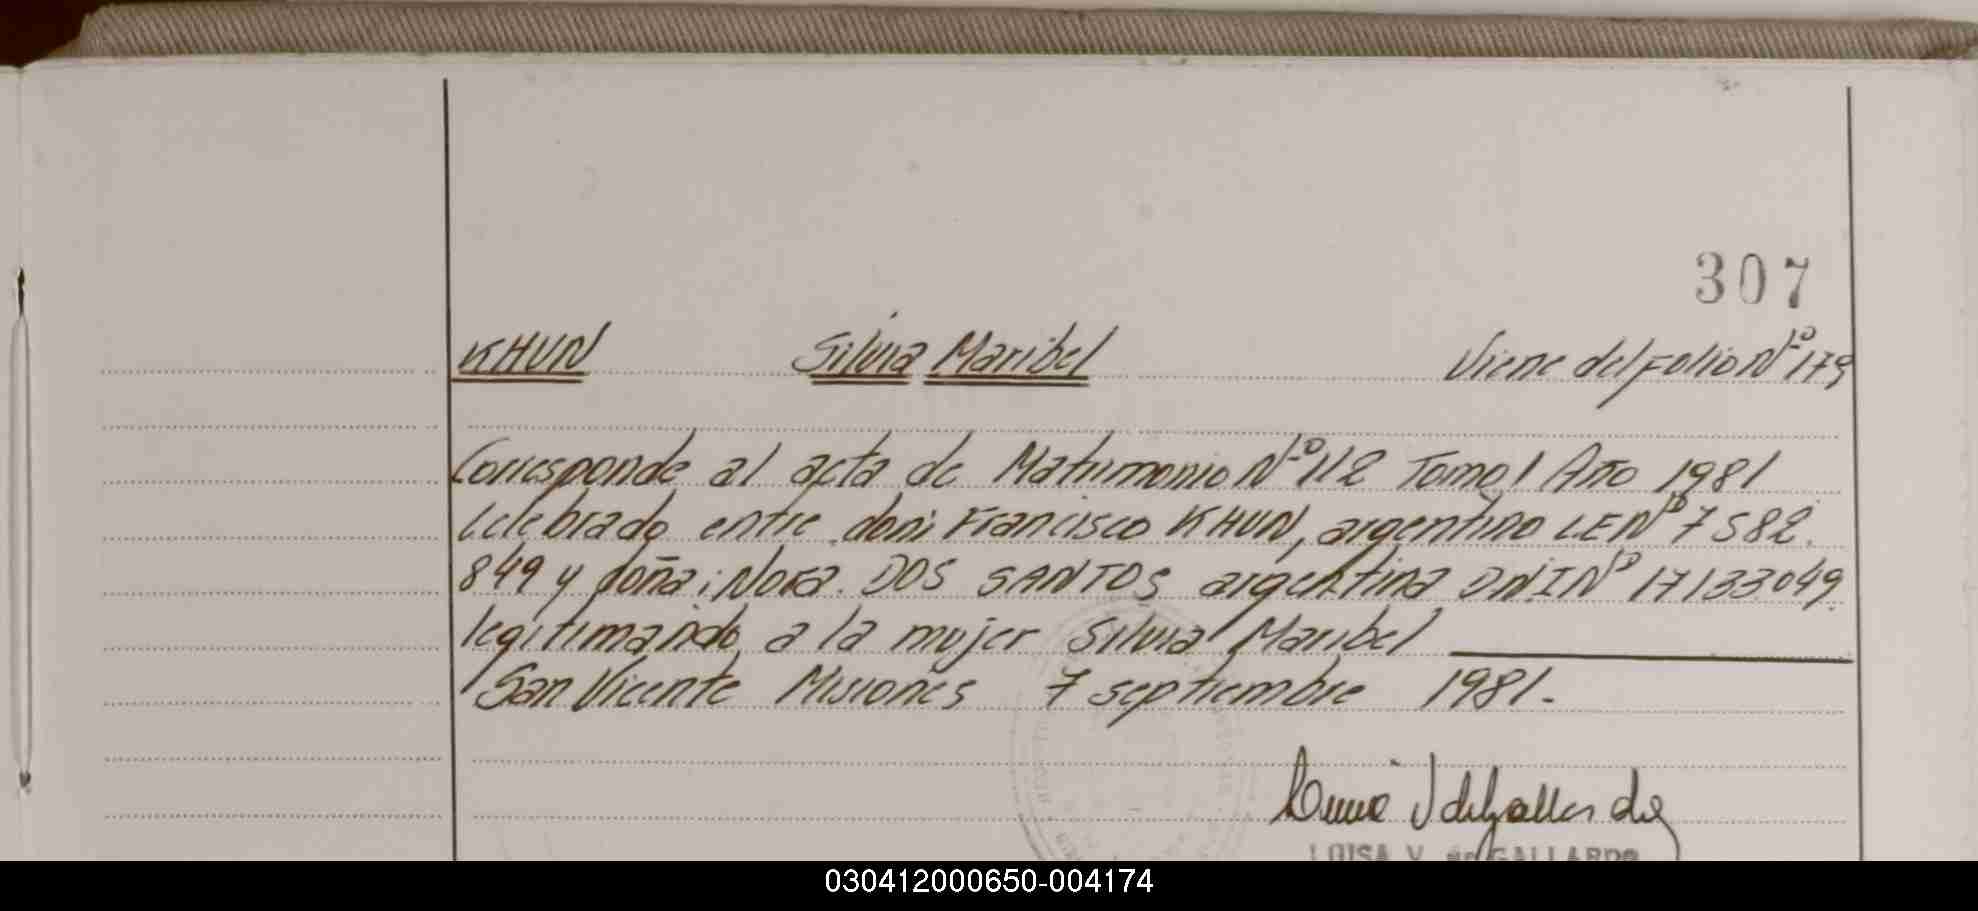 307
KHUN Silvia Maribel Viene del Folio Nº 179
Corresponde al acta de Matrimonio Nº 112 Tomo 1 Año 1981
celebrado entre don: Francisco KHUN, argentino LE Nº 7582.
849 y doña: Nora. DOS SANTOS argentina DNI Nº 17133.049.
legitimando a la mujer Silvia Maribel
San Vicente Misiones 7 septiembre 1981.-
LUISA V. de GALLARDO
030412000650-004174